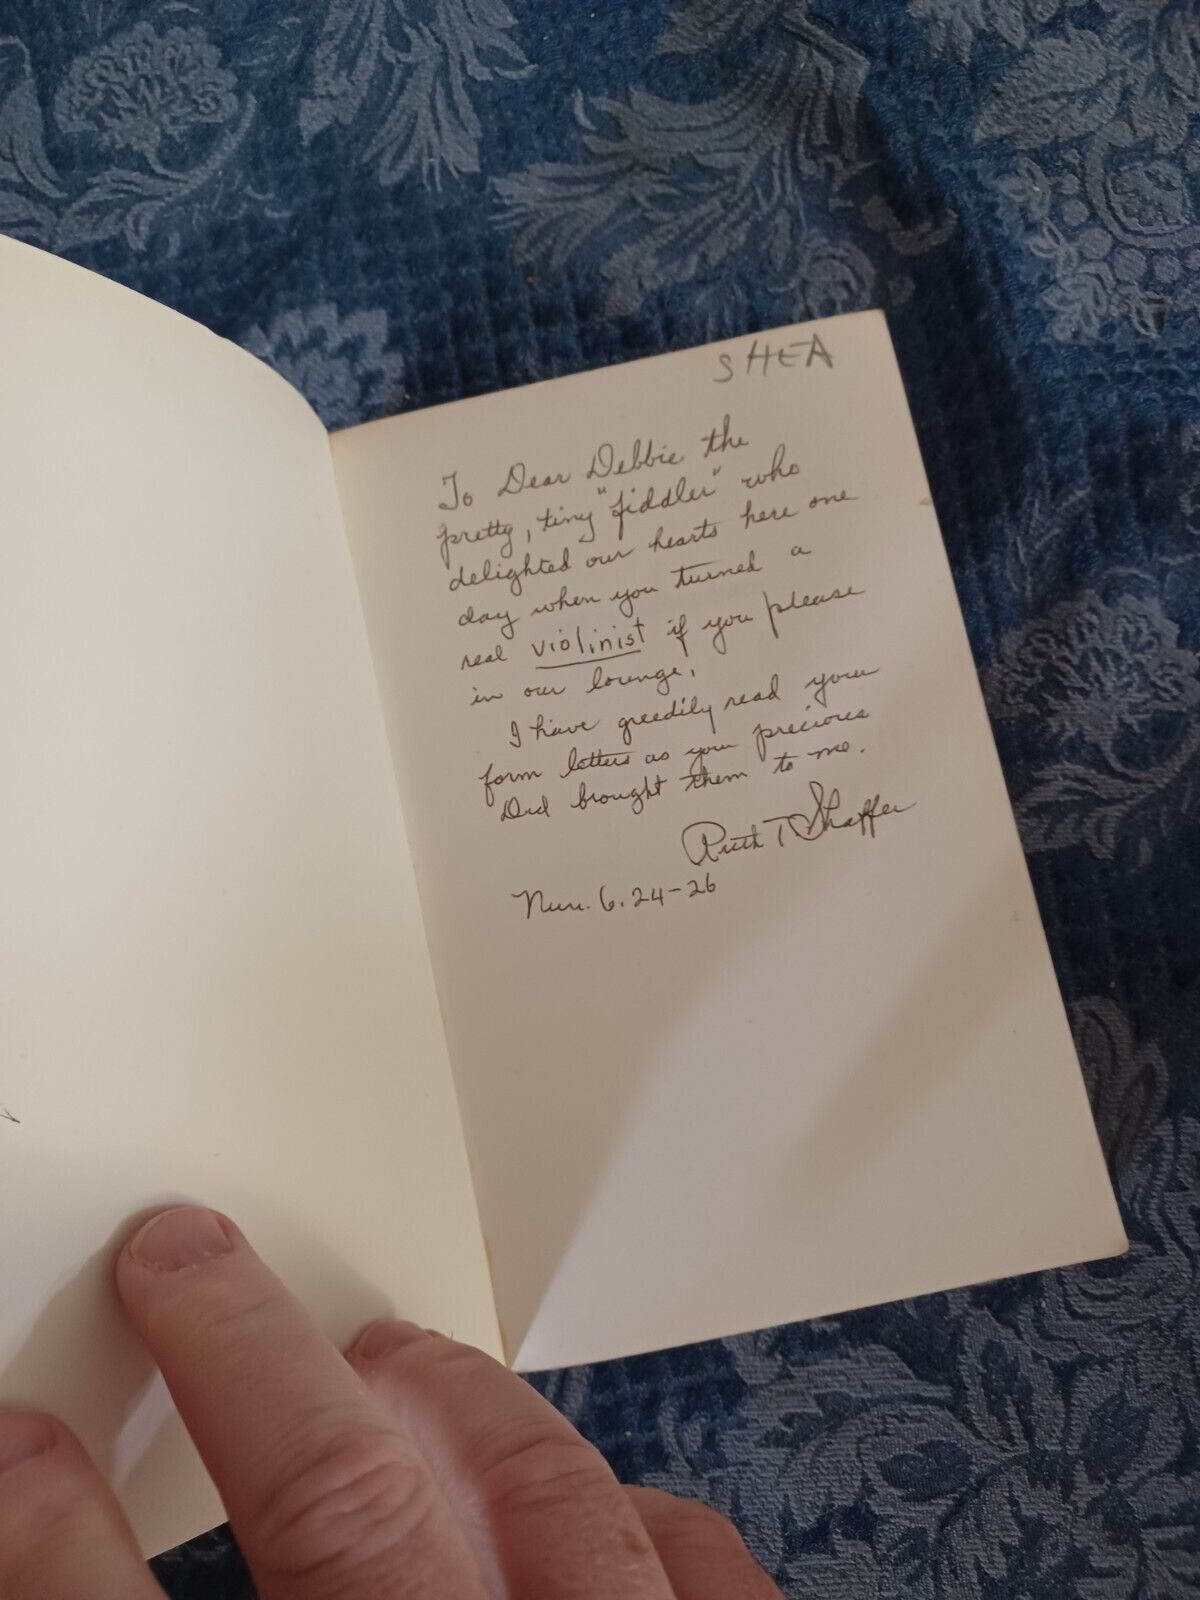 SHEA
To Dear Debbie the
pretty, tiny "fiddler" who
delighted our hearts here one
day when you turned a
real violinist if you please
in our lounge.
I have greedily read your
form letters as your precious
Dad brought them to me.
Ruth T Shaffer
Num. 6.24-26